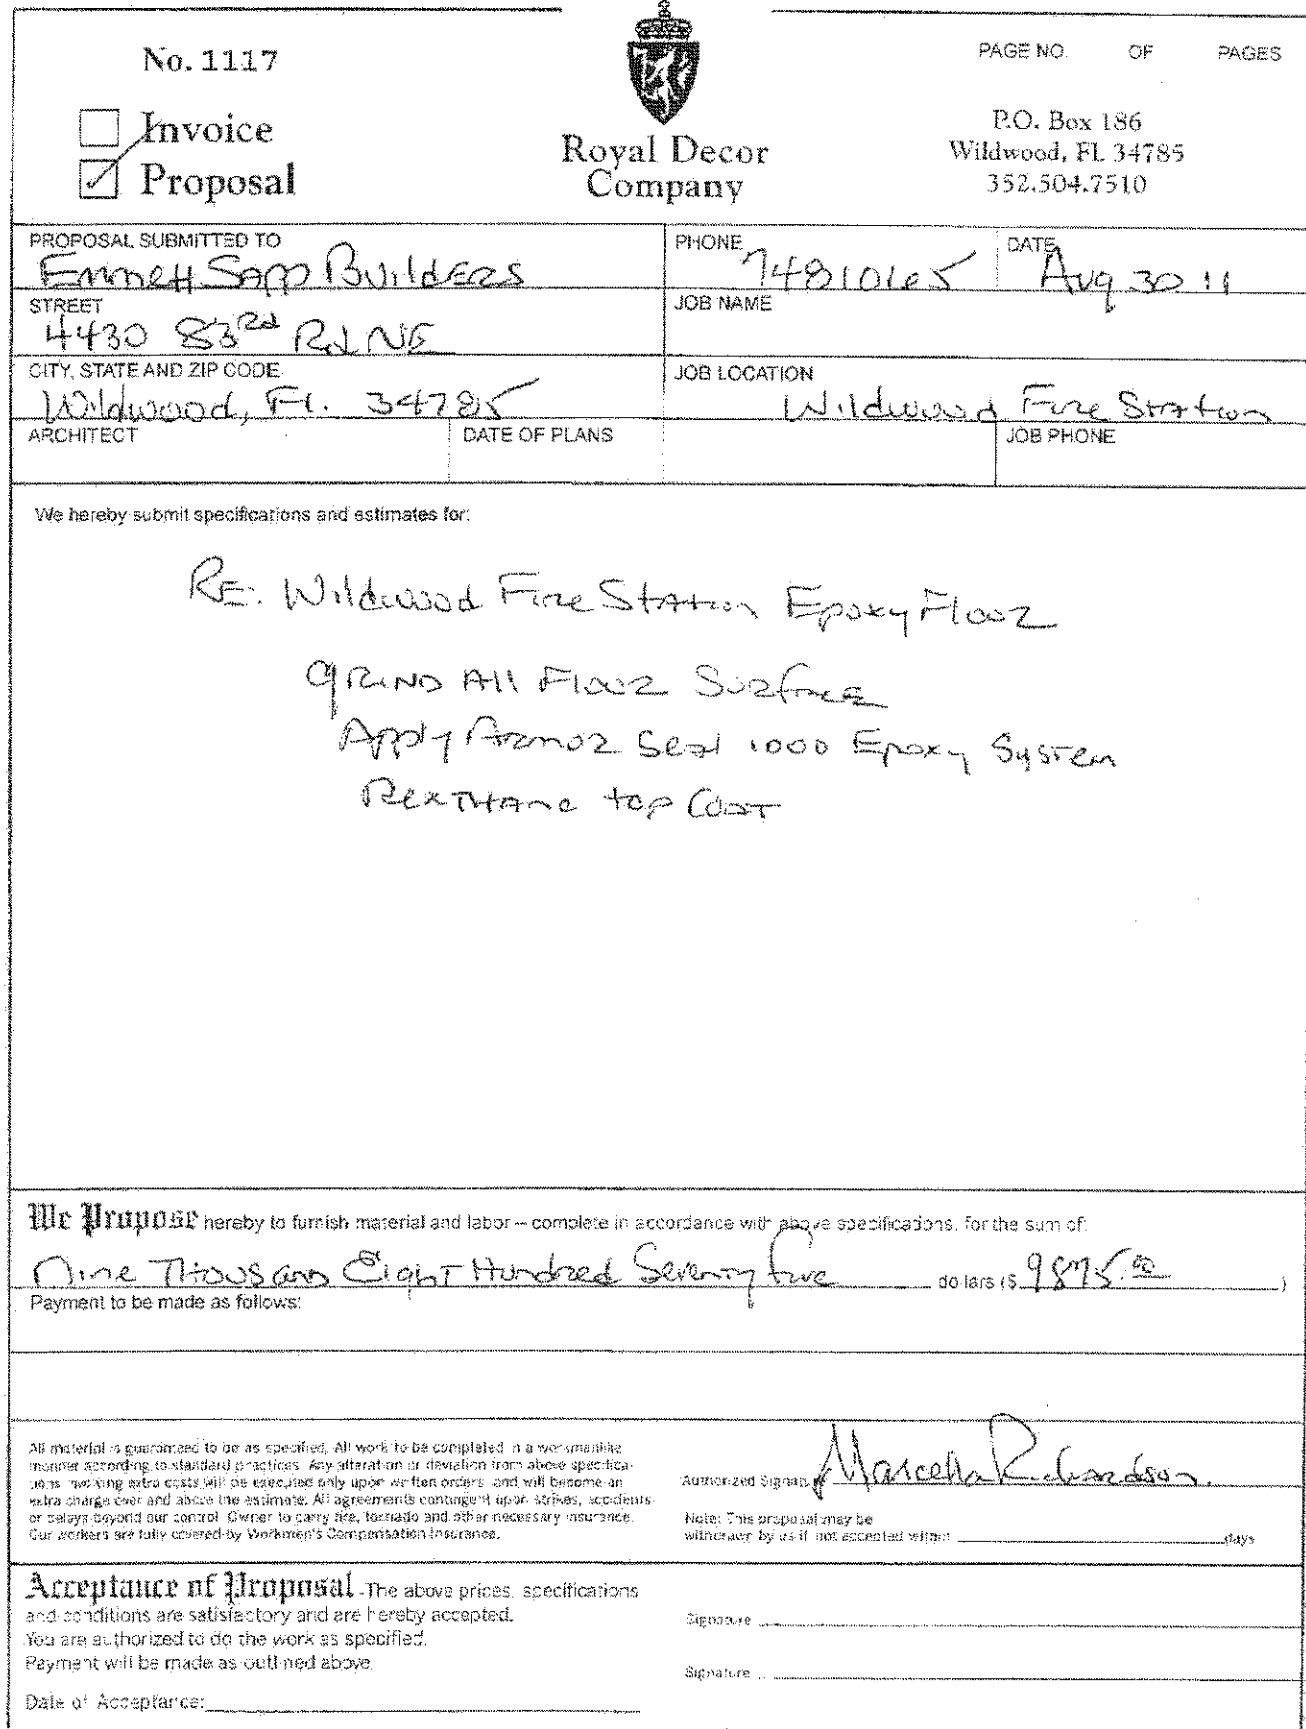 No. 1117
PAGE NO. OF PAGES
Invoice
Proposal
Royal Decor
Company
P.O. Box 186
Wildwood, FL 34785
352.504.7510
PROPOSAL SUBMITTED TO
Emmett Sapp Builders
PHONE
7481065
DATE
Aug 30 11
STREET
4430 83rd Rd NE
JOB NAME
CITY, STATE AND ZIP CODE
Wildwood, Fl. 34785
JOB LOCATION
Wildwood Fire Station
ARCHITECT
DATE OF PLANS
JOB PHONE
We hereby submit specifications and estimates for:
RE: Wildwood Fire Station Epoxy Floor
Grind All Floor Surface
Apply Armor Seal 1000 Epoxy System
Rexthane top Coat
We Propose hereby to furnish material and labor – complete in accordance with above specifications, for the sum of:
Nine Thousand Eight Hundred Seventy five dollars ($ 9875.00 )
Payment to be made as follows:
All material is guaranteed to be as specified. All work to be completed in a workmanlike
manner according to standard practices. Any alteration or deviation from above specifica-
tions involving extra costs will be executed only upon written orders, and will become an
extra charge over and above the estimate. All agreements contingent upon strikes, accidents
or delays beyond our control. Owner to carry fire, tornado and other necessary insurance.
Our workers are fully covered by Workmen's Compensation Insurance.
Authorized Signature Marcella Richardson
Note: This proposal may be
withdrawn by us if not accepted within days
Acceptance of Proposal - The above prices, specifications
and conditions are satisfactory and are hereby accepted.
You are authorized to do the work as specified.
Payment will be made as outlined above.
Signature
Signature
Date of Acceptance: